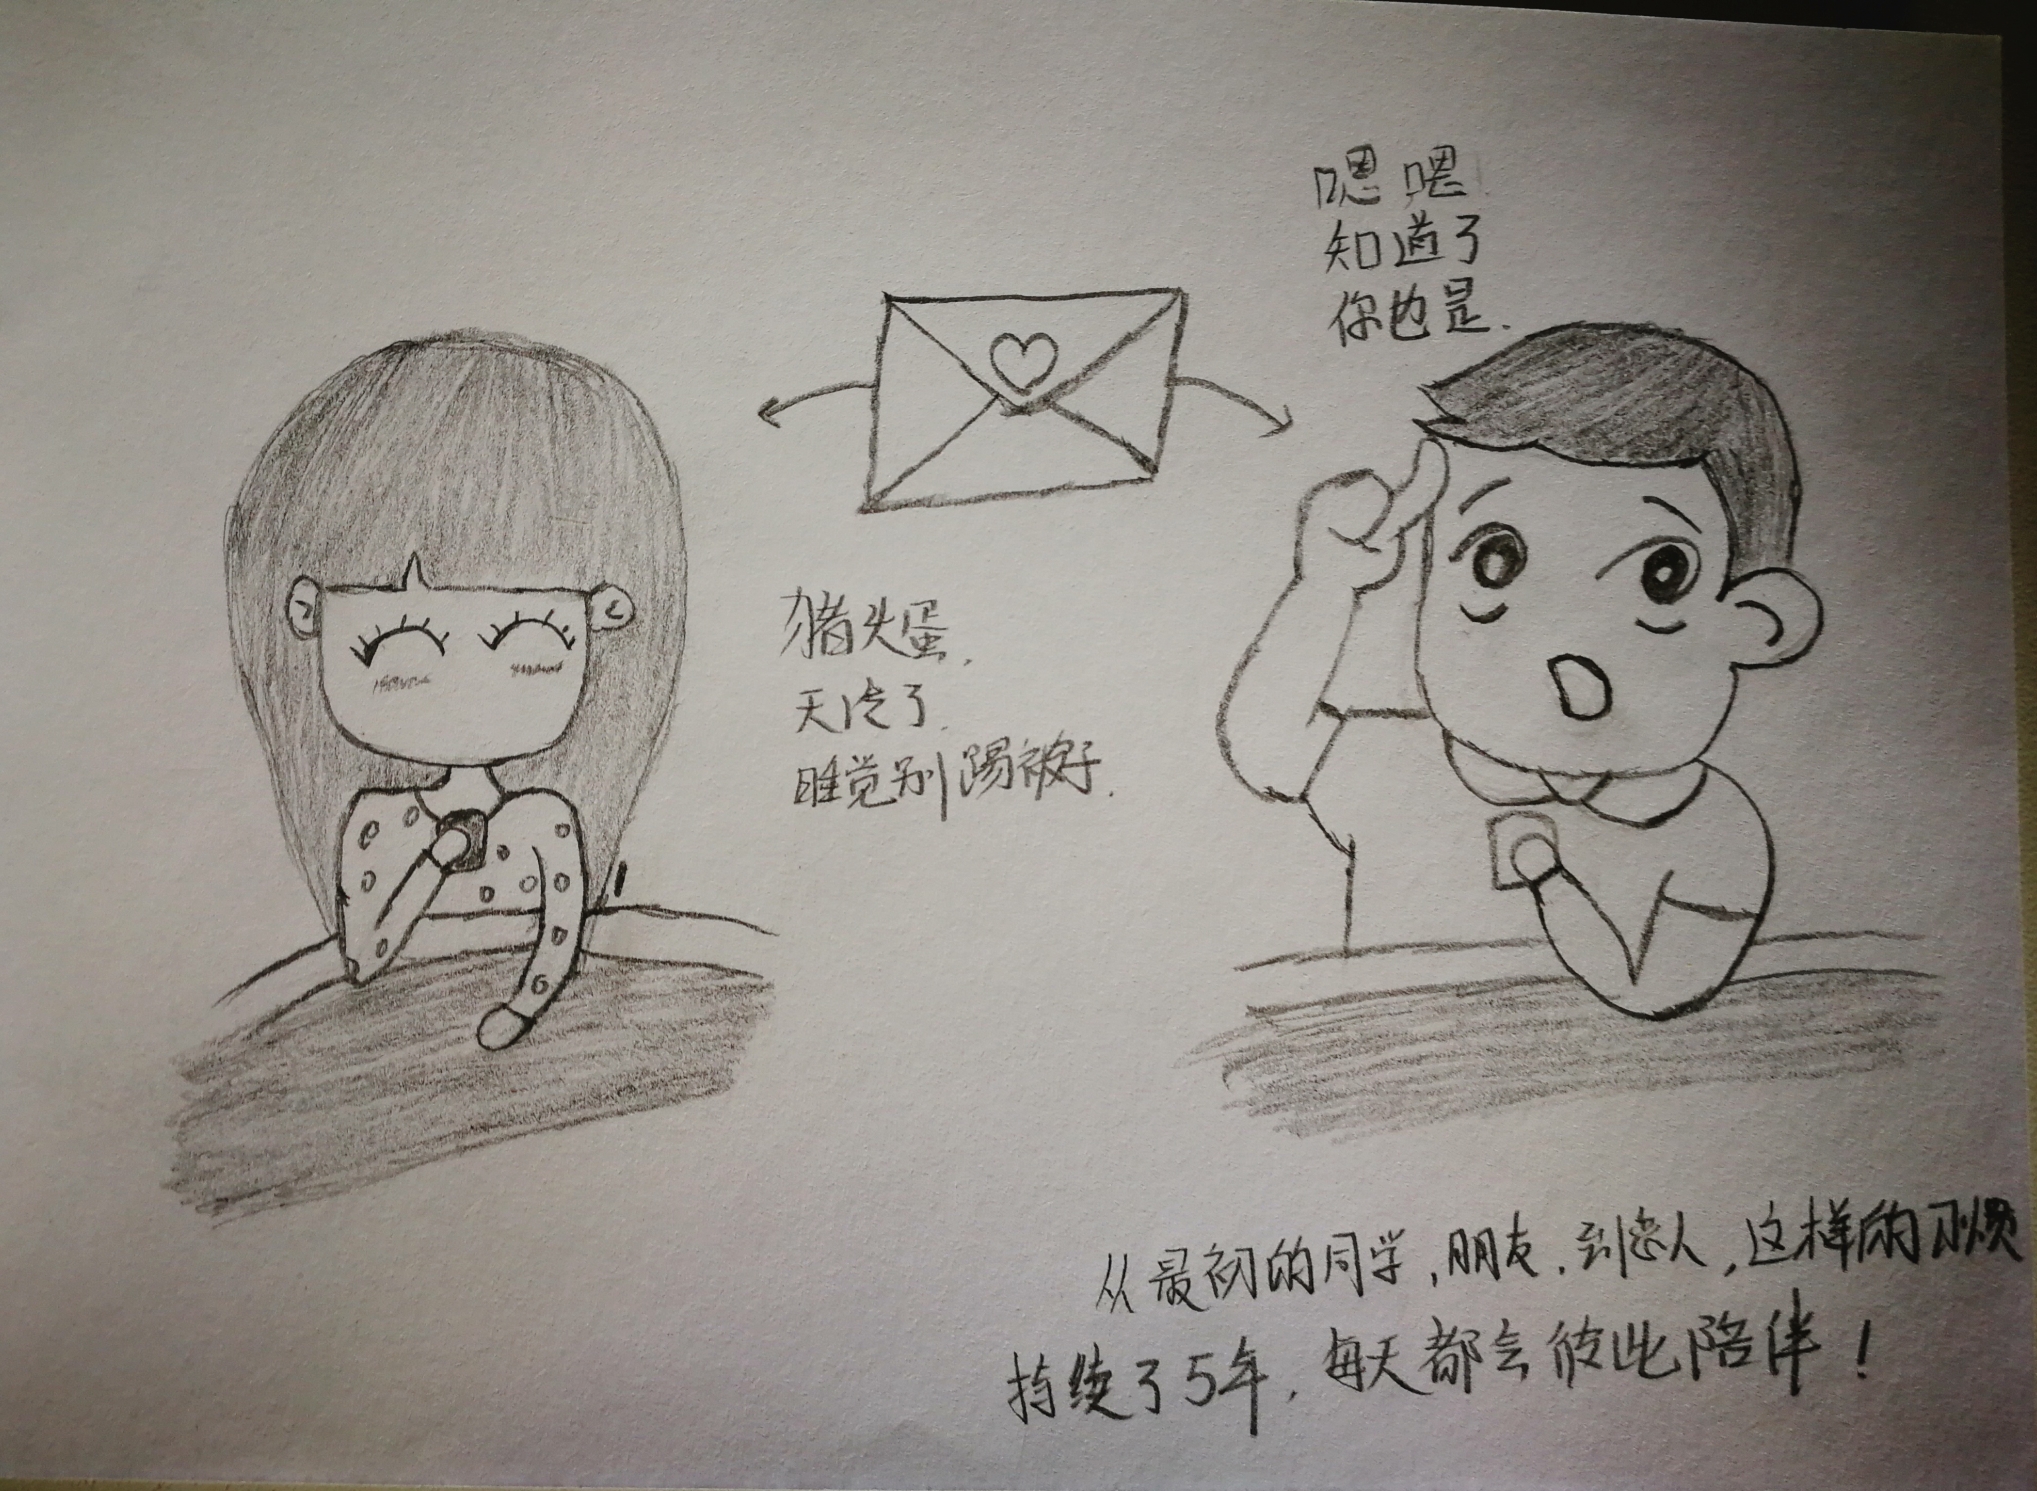 嗯嗯!
知道了
你也是.
猪头蛋,
天冷了.
睡觉别踢被子.
从最初的同学,朋友,到恋人,这样的习惯
持续了5年,每天都会彼此陪伴!